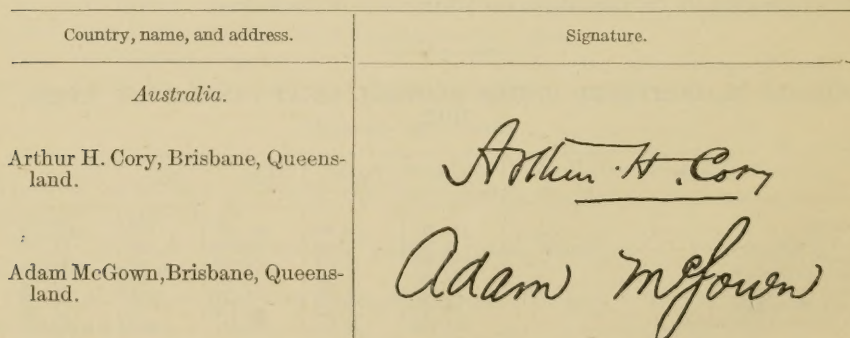 Country, name, and address.
Signature.
Australia.
Arthur H. Cory, Brisbane, Queens-
land.
Arthur. H. Cory
Adam McGown,Brisbane, Queens-
land.
Adam McGown